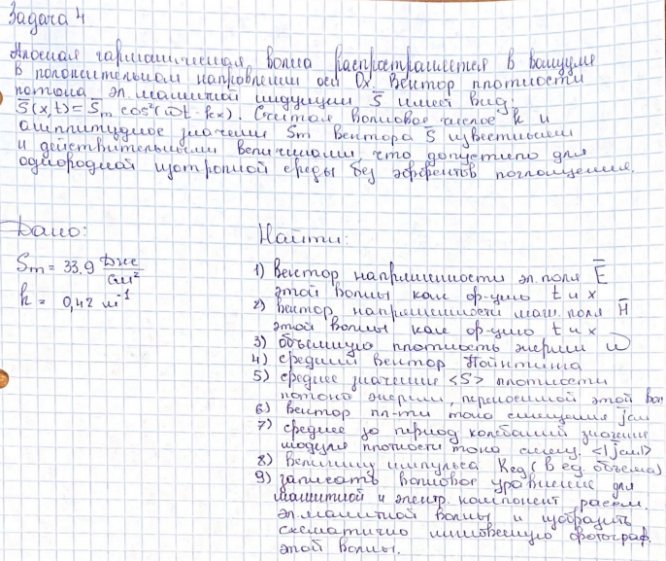 Задача 4
Плоская гармоническая волна распространяется в вакууме
в положительном направлении оси Ox. Вектор плотности
потока эл. магнитной индукции S имеет вид:
S(x,t)=Sm cos²(ωt-kx). Считая волновое число k и
амплитудное значение Sm вектора S известными
и действительными величинами, что допустимо для
однородной изотропной среды без эффектов поглощения.
Дано:
Sm = 33,9 Дж/см²
k = 0,42 м⁻¹
Найти:
1) Вектор напряженности эл. поля E
этой волны как ф-цию t и x
2) Вектор напряженности маг. поля H
этой волны как ф-цию t и x
3) объемную плотность энергии ω
4) средний вектор Пойнтинга
5) среднее значение <S> плотности
потока энергии, переносимой этой вол
6) Вектор пл-ти тока смещения jсм
7) среднее за период колебаний значение
модуля плотности тока смещ. <|jсм|>
8) величину импульса Kед (в ед. объема)
9) записать волновое уравнение для
магнитной и электр. компонент рассм.
эл. магнитной волны и изобразить
схематично мгновенную фотограф.
этой волны.